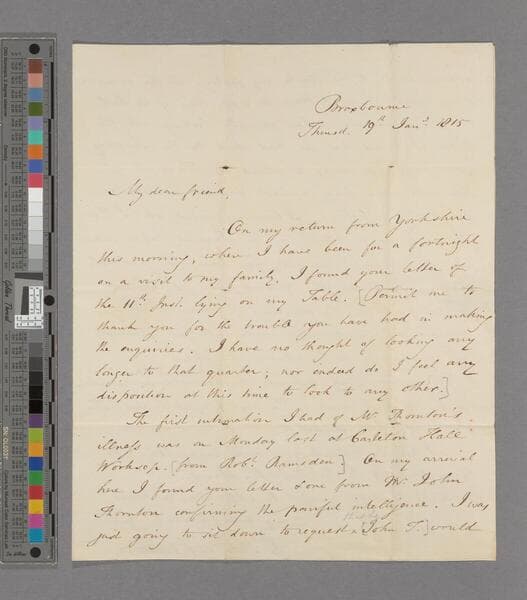 Broxbourne
Thursd. 19th Jany. 1815
My dear friend,
On my return from Yorkshire
this morning, where I have been for a fortnight
on a visit to my family, I found your letter of
the 11th Inst. lying on my Table. [Permit me to
thank you for the trouble you have had in making
the enquiries. I have no thought of looking any
longer to that quarter; nor indeed do I feel any
disposition at this time to look to any other.]
The first intimation I had of Mr Thornton's
illness was on Monday last at Carlton Hall
Worksop. [from Robt. Ramsden.] On my arrival
here I found your letter & one from Mr John
Thornton confirming the painful intelligence. I was
just going to sit down to request [John T.] would
Golden Thread